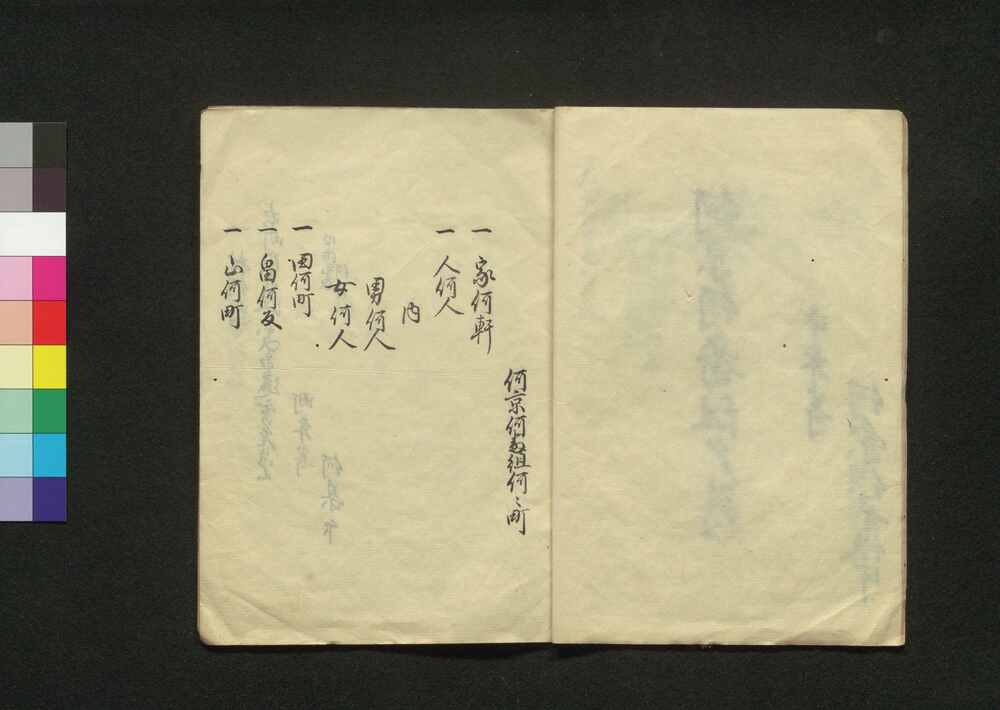 何京何番組何々町
一家何軒
一人何人
内
男何人
女何人
一田何町
一畠何反
一山何町